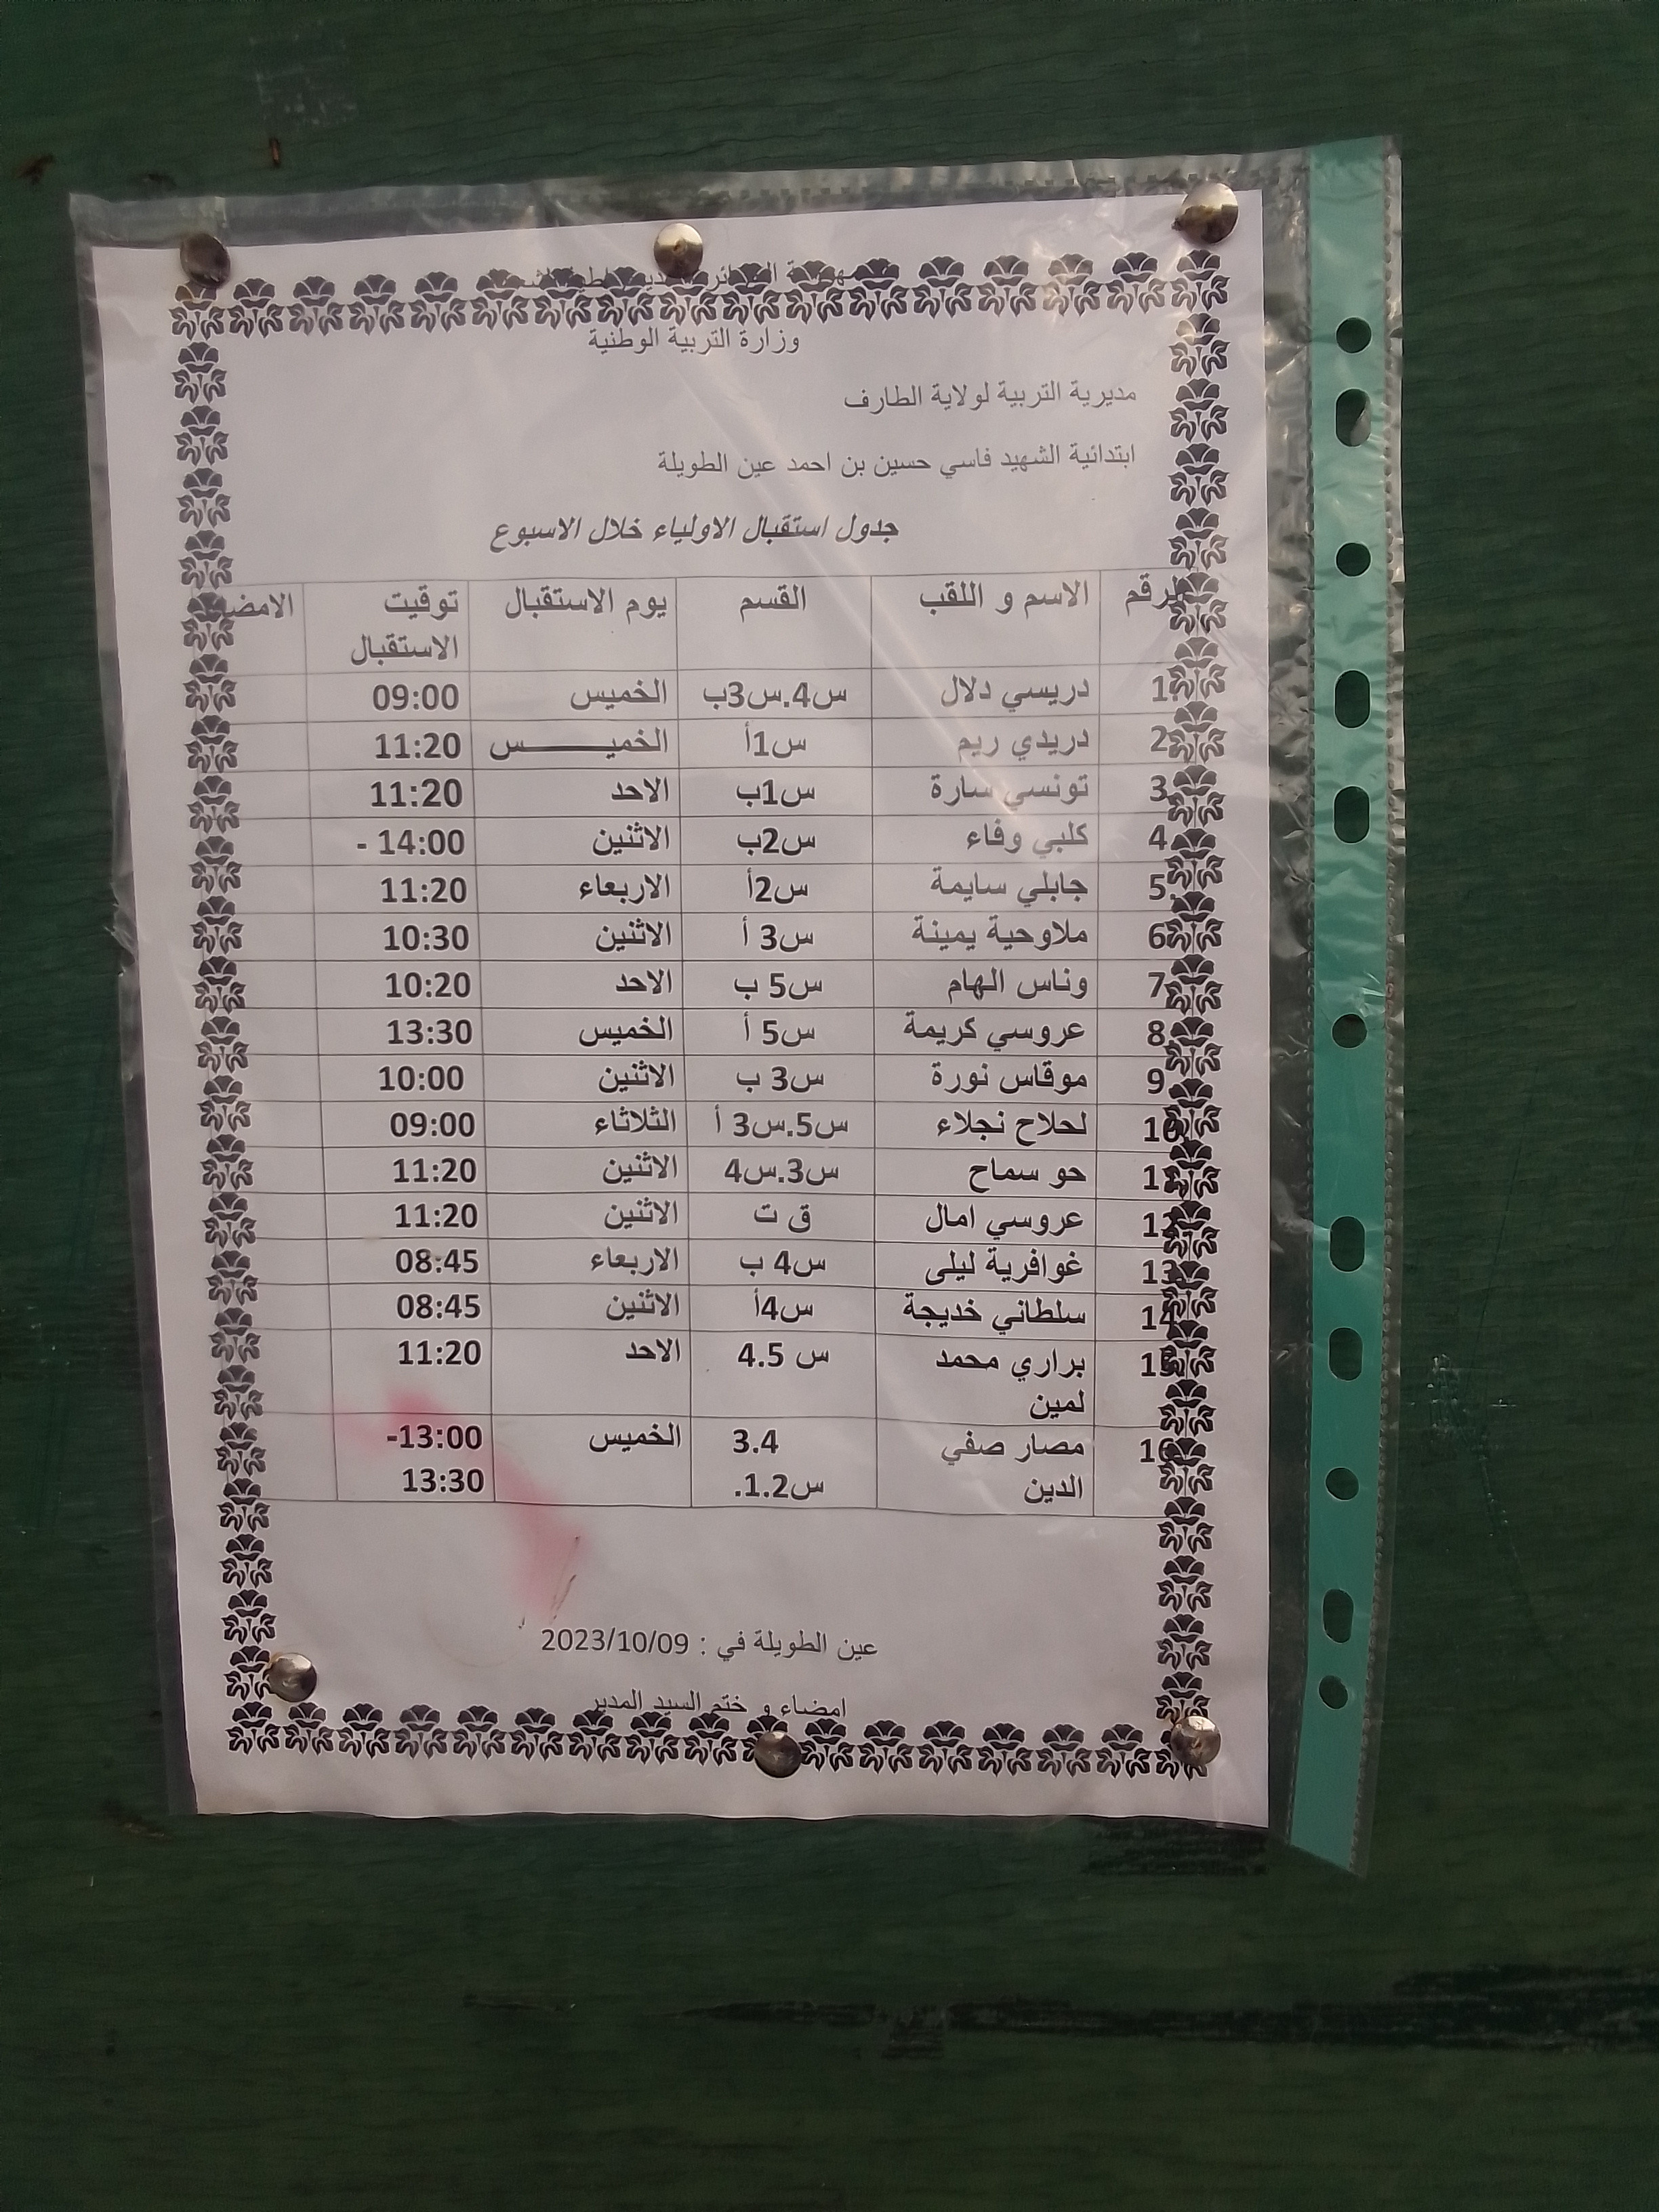 وزارة التربية الوطنية
مديرية التربية لولاية الطارف
ابتدائية الشهيد فاسي حسين بن احمد عين الطويلة
جدول استقبال الاولياء خلال الاسبوع
الرقم الاسم و اللقب القسم يوم الاستقبال توقيت الاستقبال
1. دريسي دلال س4.س3ب الخميس 09:00
2 دريدي ريم س1أ الخميـــــــس 11:20
3 تونسي سارة س1ب الاحد 11:20
4 كلبي وفاء س2ب الاثنين 14:00 -
5. جابلي سايمة س2أ الاربعاء 11:20
6 ملاوحية يمينة س3 أ الاثنين 10:30
7 وناس الهام س5 ب الاحد 10:20
8 عروسي كريمة س5 أ الخميس 13:30
9 موقاس نورة س3 ب الاثنين 10:00
10 لحلاح نجلاء س5.س3 أ الثلاثاء 09:00
11 حو سماح س3.س4 الاثنين 11:20
12 عروسي امال ق ت الاثنين 11:20
13 غوافرية ليلى س4 ب الاربعاء 08:45
14 سلطاني خديجة س4أ الاثنين 08:45
15 براري محمد لمين س 4.5 الاحد 11:20
16 مصار صفي الدين 3.4 س1.2. الخميس 13:00-13:30
عين الطويلة في : 2023/10/09
امضاء و ختم السيد المدير